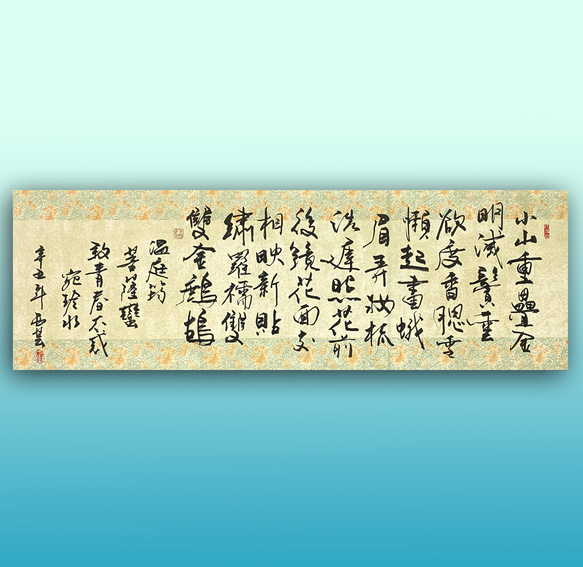 小山重疊金
明滅鬢雲
欲度香腮雪
懶起畫蛾
眉弄妝梳
洗遲照花前
後鏡花面交
相映新貼
繡羅襦雙
雙金鷓鴣
温庭筠
菩薩蠻
青春不
宛
辛丑年